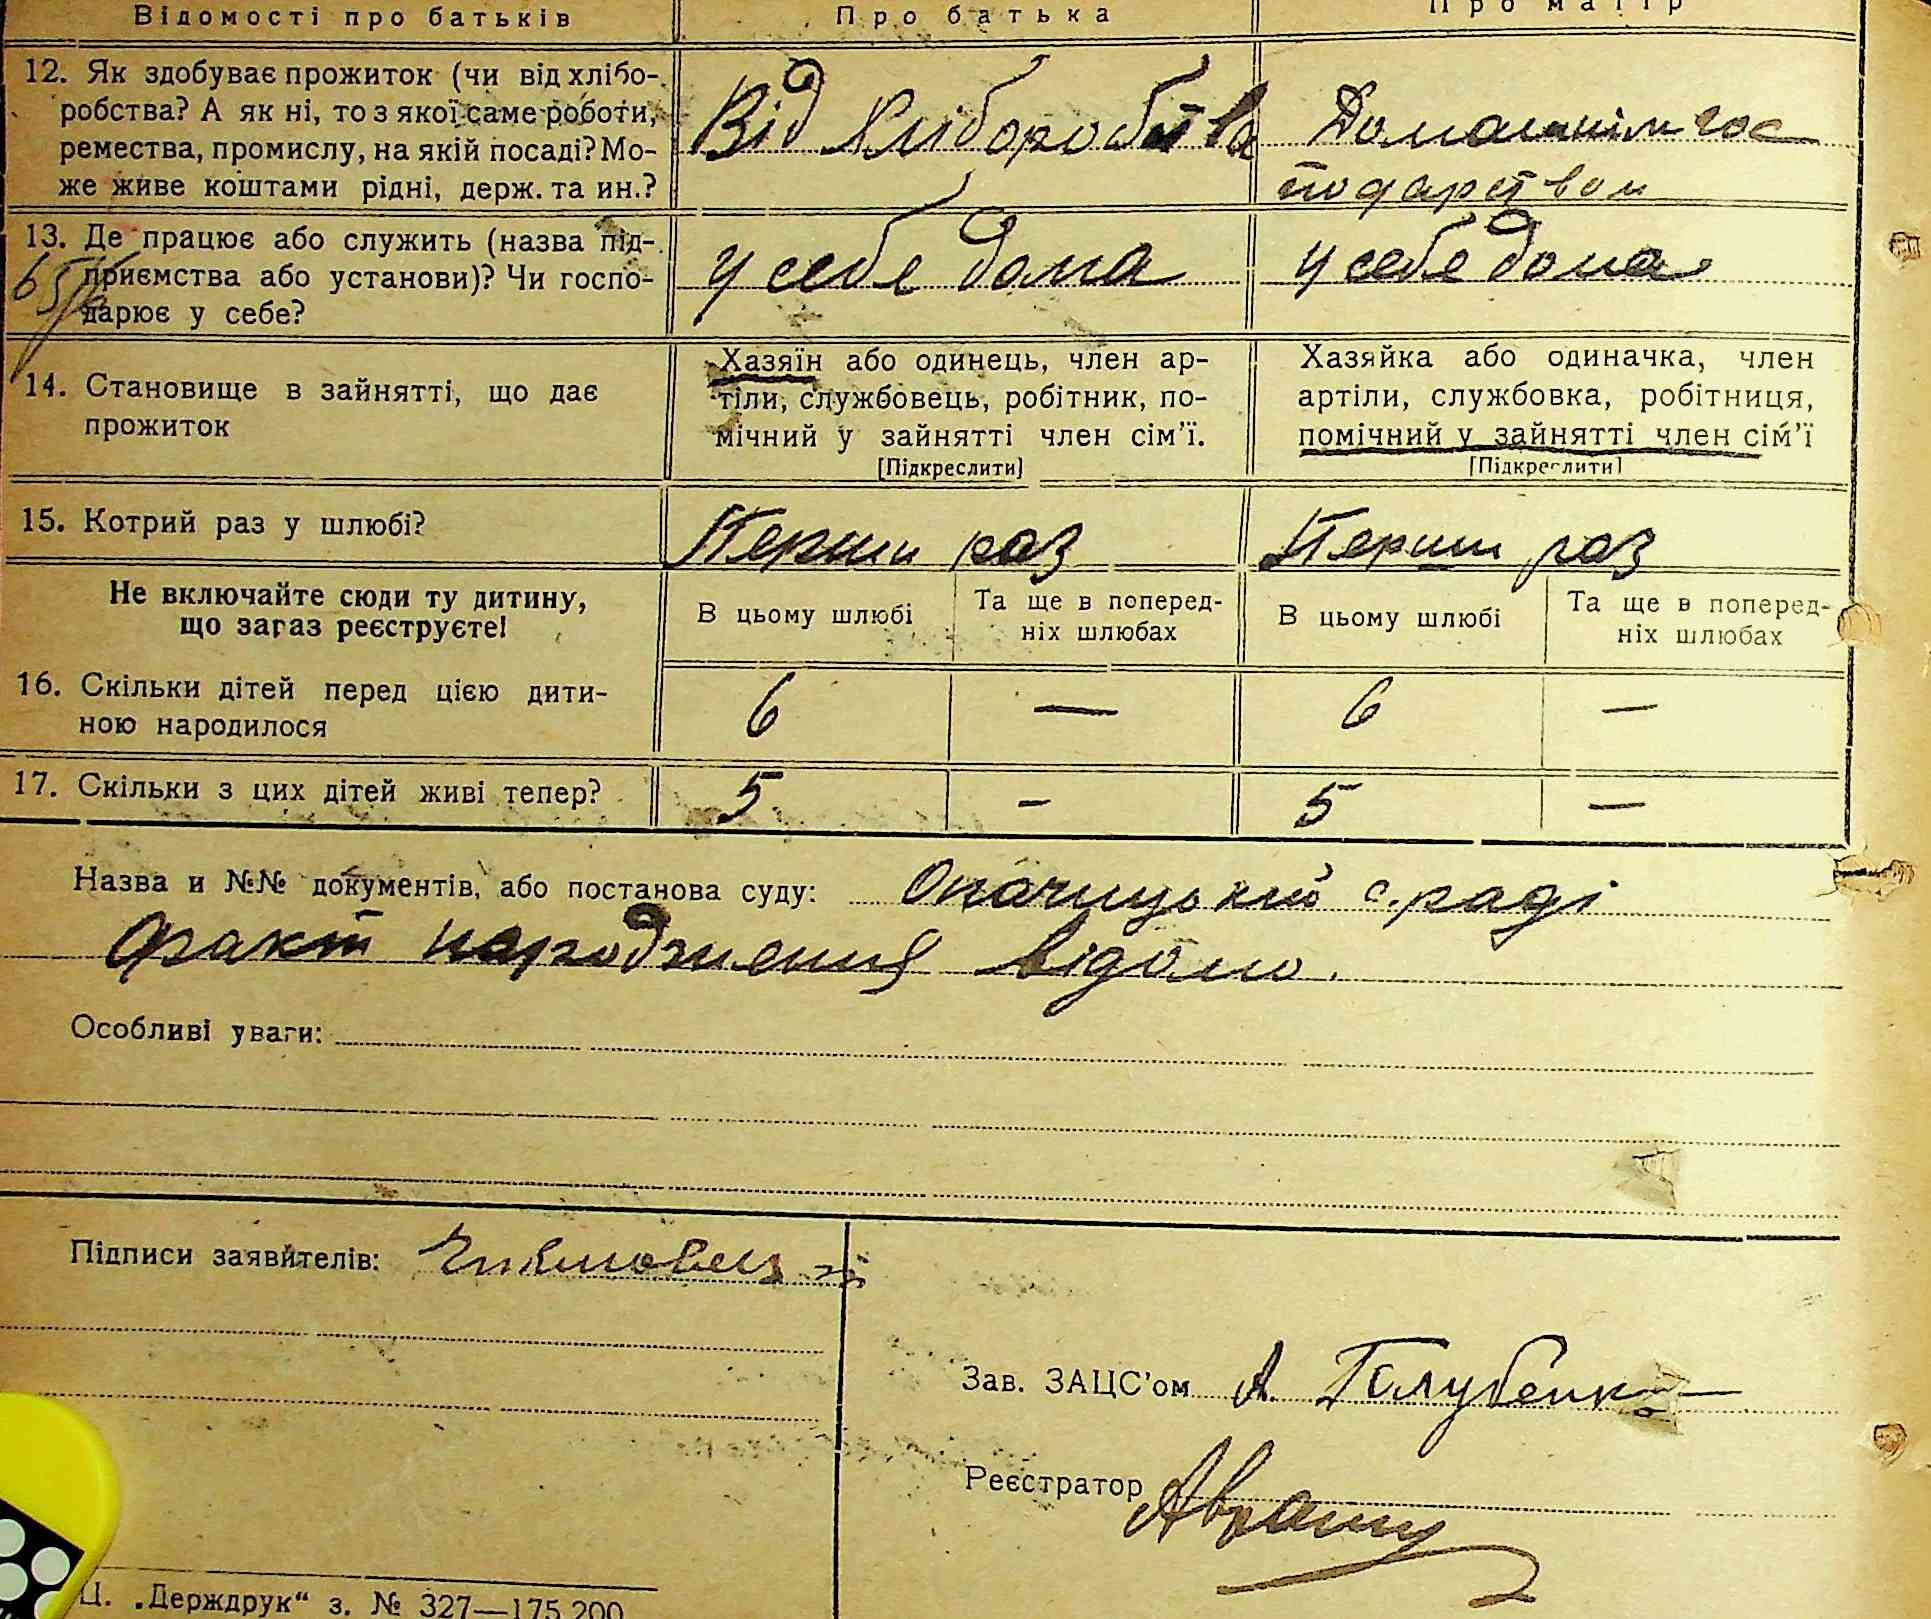 Відомості про батьків Про батька Про матір
12. Як здобуває прожиток (чи від хлібо-
робства? А як ні, то з якої саме роботи,
ремества, промислу, на якій посаді? Мо-
же живе коштами рідні, держ. та ин.?
Від хліборобства
Домашнім гос
подарством
13. Де працює або служить (назва під-
приємства або установи)? Чи госпо-
дарює у себе?
у себе дома
у себе дома
14. Становище в зайнятті, що дає
прожиток
Хазяїн або одинець, член ар-
тіли, службовець, робітник, по-
мічний у зайнятті член сім'ї.
[Підкреслити]
Хазяйка або одиначка, член
артіли, службовка, робітниця,
помічний у зайнятті член сім'ї
[Підкреслити]
15. Котрий раз у шлюбі?
Перши раз
Перши раз
Не включайте сюди ту дитину,
що зараз реєструєте!
В цьому шлюбі
Та ще в поперед-
ніх шлюбах
В цьому шлюбі
Та ще в поперед-
ніх шлюбах
16. Скільки дітей перед цією дити-
ною народилося
6 — 6 —
17. Скільки з цих дітей живі тепер? 5 - 5 —
Назва и №№ документів, або постанова суду: Опачицькій с.раді
факт народження відомо.
Особливі уваги:
Підписи заявителів:
Зав. ЗАЦС'ом А. Голубенко
Реєстратор
Ц. „Держдрук“ з. № 327—175.200